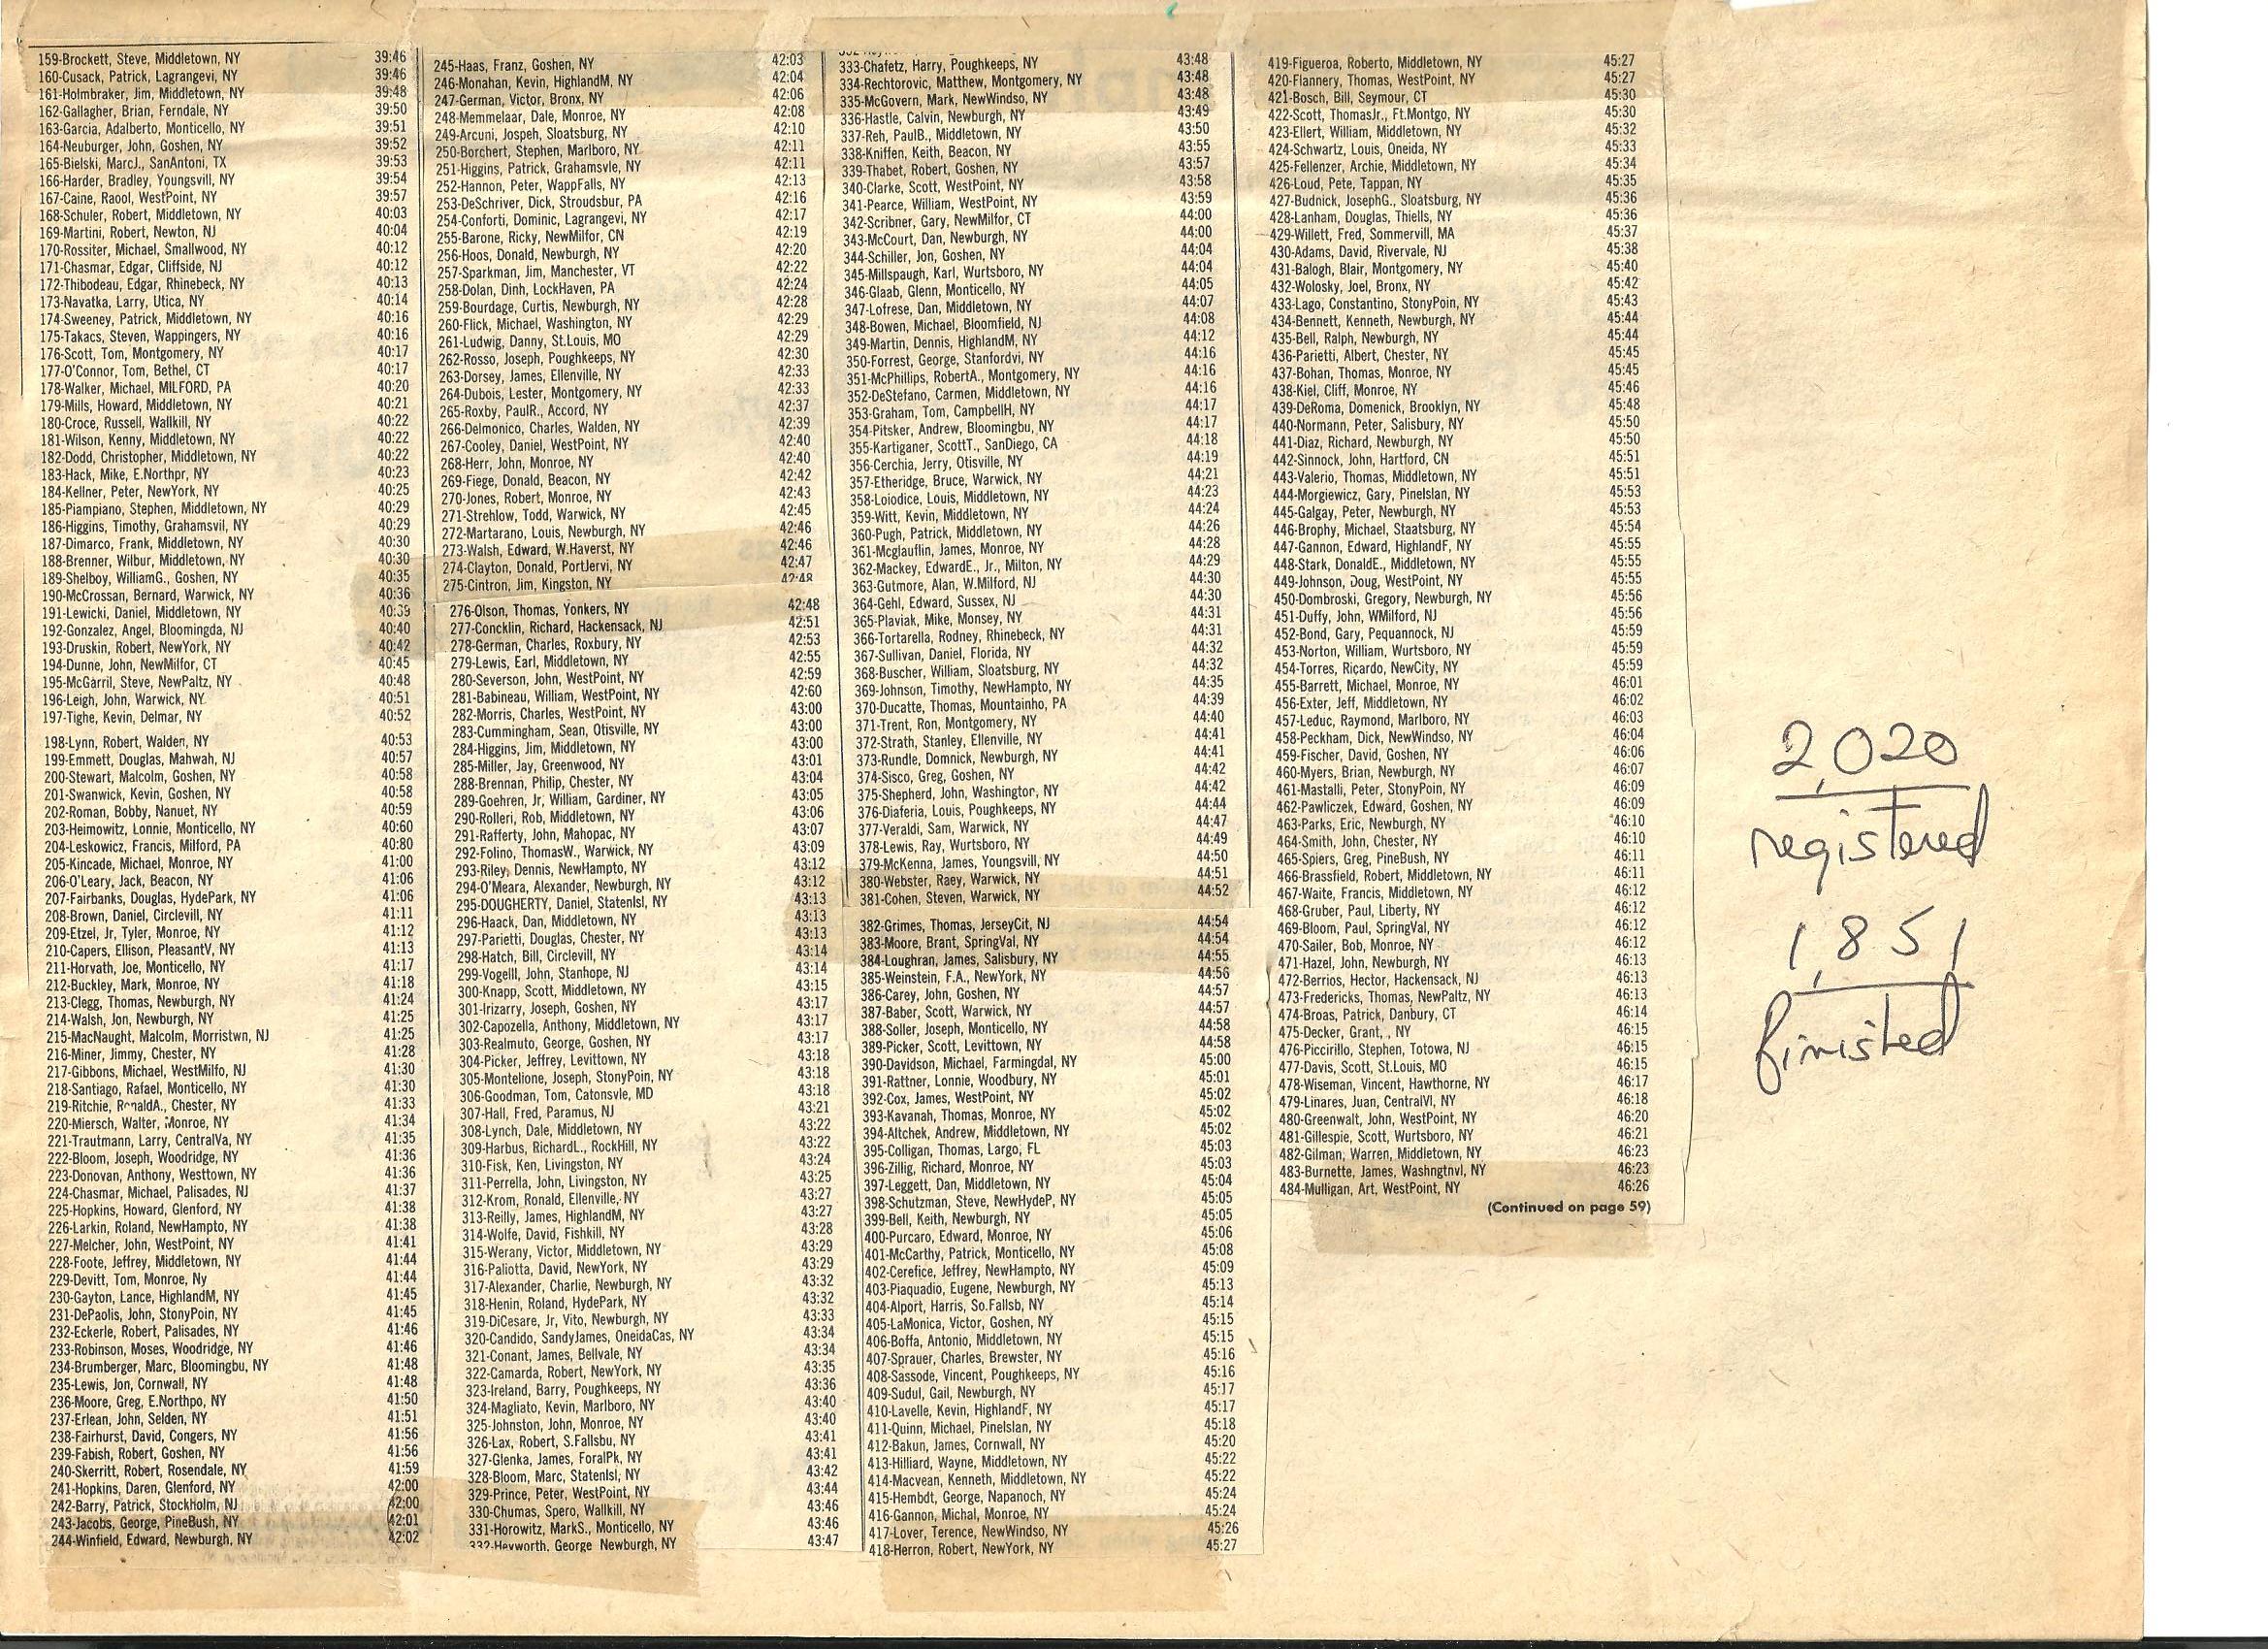 159-Brockett, Steve, Middletown, NY 39:46
160-Cusack, Patrick, Lagrangevi, NY 39:46
161-Holmbraker, Jim, Middletown, NY 39:48
162-Gallagher, Brian, Ferndale, NY 39:50
163-Garcia, Adalberto, Monticello, NY 39:51
164-Neuburger, John, Goshen, NY 39:52
165-Bielski, MarcJ., SanAntoni, TX 39:53
166-Harder, Bradley, Youngsvill, NY 39:54
167-Caine, Raool, WestPoint, NY 39:57
168-Schuler, Robert, Middletown, NY 40:03
169-Martini, Robert, Newton, NJ 40:04
170-Rossiter, Michael, Smallwood, NY 40:12
171-Chasmar, Edgar, Cliffside, NJ 40:12
172-Thibodeau, Edgar, Rhinebeck, NY 40:13
173-Navatka, Larry, Utica, NY 40:14
174-Sweeney, Patrick, Middletown, NY 40:16
175-Takacs, Steven, Wappingers, NY 40:16
176-Scott, Tom, Montgomery, NY 40:17
177-O'Connor, Tom, Bethel, CT 40:17
178-Walker, Michael, MILFORD, PA 40:20
179-Mills, Howard, Middletown, NY 40:21
180-Croce, Russell, Wallkill, NY 40:22
181-Wilson, Kenny, Middletown, NY 40:22
182-Dodd, Christopher, Middletown, NY 40:22
183-Hack, Mike, E.Northpr, NY 40:23
184-Kellner, Peter, NewYork, NY 40:25
185-Piampiano, Stephen, Middletown, NY 40:29
186-Higgins, Timothy, Grahamsvil, NY 40:29
187-Dimarco, Frank, Middletown, NY 40:30
188-Brenner, Wilbur, Middletown, NY 40:30
189-Shelboy, WilliamG., Goshen, NY 40:35
190-McCrossan, Bernard, Warwick, NY 40:36
191-Lewicki, Daniel, Middletown, NY 40:39
192-Gonzalez, Angel, Bloomingda, NJ 40:40
193-Druskin, Robert, NewYork, NY 40:42
194-Dunne, John, NewMilfor, CT 40:45
195-McGarril, Steve, NewPaltz, NY 40:48
196-Leigh, John, Warwick, NY 40:51
197-Tighe, Kevin, Delmar, NY 40:52
198-Lynn, Robert, Walden, NY 40:53
199-Emmett, Douglas, Mahwah, NJ 40:57
200-Stewart, Malcolm, Goshen, NY 40:58
201-Swanwick, Kevin, Goshen, NY 40:58
202-Roman, Bobby, Nanuet, NY 40:59
203-Heimowitz, Lonnie, Monticello, NY 40:60
204-Leskowicz, Francis, Milford, PA 40:80
205-Kincade, Michael, Monroe, NY 41:00
206-O'Leary, Jack, Beacon, NY 41:06
207-Fairbanks, Douglas, HydePark, NY 41:06
208-Brown, Daniel, Circlevill, NY 41:11
209-Etzel, Jr, Tyler, Monroe, NY 41:12
210-Capers, Ellison, PleasantV, NY 41:13
211-Horvath, Joe, Monticello, NY 41:17
212-Buckley, Mark, Monroe, NY 41:18
213-Clegg, Thomas, Newburgh, NY 41:24
214-Walsh, Jon, Newburgh, NY 41:25
215-MacNaught, Malcolm, Morristwn, NJ 41:25
216-Miner, Jimmy, Chester, NY 41:28
217-Gibbons, Michael, WestMilfo, NJ 41:30
218-Santiago, Rafael, Monticello, NY 41:30
219-Ritchie, RonaldA., Chester, NY 41:33
220-Miersch, Walter, Monroe, NY 41:34
221-Trautmann, Larry, CentralVa, NY 41:35
222-Bloom, Joseph, Woodridge, NY 41:36
223-Donovan, Anthony, Westtown, NY 41:36
224-Chasmar, Michael, Palisades, NJ 41:37
225-Hopkins, Howard, Glenford, NY 41:38
226-Larkin, Roland, NewHampto, NY 41:38
227-Melcher, John, WestPoint, NY 41:41
228-Foote, Jeffrey, Middletown, NY 41:44
229-Devitt, Tom, Monroe, Ny 41:44
230-Gayton, Lance, HighlandM, NY 41:45
231-DePaolis, John, StonyPoin, NY 41:45
232-Eckerle, Robert, Palisades, NY 41:46
233-Robinson, Moses, Woodridge, NY 41:46
234-Brumberger, Marc, Bloomingbu, NY 41:48
235-Lewis, Jon, Cornwall, NY 41:48
236-Moore, Greg, E.Northpo, NY 41:50
237-Erlean, John, Selden, NY 41:51
238-Fairhurst, David, Congers, NY 41:56
239-Fabish, Robert, Goshen, NY 41:56
240-Skerritt, Robert, Rosendale, NY 41:59
241-Hopkins, Daren, Glenford, NY 42:00
242-Barry, Patrick, Stockholm, NJ 42:00
243-Jacobs, George, PineBush, NY 42:01
244-Winfield, Edward, Newburgh, NY 42:02
245-Haas, Franz, Goshen, NY 42:03
246-Monahan, Kevin, HighlandM, NY 42:04
247-German, Victor, Bronx, NY 42:06
248-Memmelaar, Dale, Monroe, NY 42:08
249-Arcuni, Jospeh, Sloatsburg, NY 42:10
250-Borchert, Stephen, Marlboro, NY 42:11
251-Higgins, Patrick, Grahamsvle, NY 42:11
252-Hannon, Peter, WappFalls, NY 42:13
253-DeSchriver, Dick, Stroudsbur, PA 42:16
254-Conforti, Dominic, Lagrangevi, NY 42:17
255-Barone, Ricky, NewMilfor, CN 42:19
256-Hoos, Donald, Newburgh, NY 42:20
257-Sparkman, Jim, Manchester, VT 42:22
258-Dolan, Dinh, LockHaven, PA 42:24
259-Bourdage, Curtis, Newburgh, NY 42:28
260-Flick, Michael, Washington, NY 42:29
261-Ludwig, Danny, St.Louis, MO 42:29
262-Rosso, Joseph, Poughkeeps, NY 42:30
263-Dorsey, James, Ellenville, NY 42:33
264-Dubois, Lester, Montgomery, NY 42:33
265-Roxby, PaulR., Accord, NY 42:37
266-Delmonico, Charles, Walden, NY 42:39
267-Cooley, Daniel, WestPoint, NY 42:40
268-Herr, John, Monroe, NY 42:40
269-Fiege, Donald, Beacon, NY 42:42
270-Jones, Robert, Monroe, NY 42:43
271-Strehlow, Todd, Warwick, NY 42:45
272-Martarano, Louis, Newburgh, NY 42:46
273-Walsh, Edward, W.Haverst, NY 42:46
274-Clayton, Donald, PortJervi, NY 42:47
275-Cintron, Jim, Kingston, NY 42:48
276-Olson, Thomas, Yonkers, NY 42:48
277-Concklin, Richard, Hackensack, NJ 42:51
278-German, Charles, Roxbury, NY 42:53
279-Lewis, Earl, Middletown, NY 42:55
280-Severson, John, WestPoint, NY 42:59
281-Babineau, William, WestPoint, NY 42:60
282-Morris, Charles, WestPoint, NY 43:00
283-Cummingham, Sean, Otisville, NY 43:00
284-Higgins, Jim, Middletown, NY 43:00
285-Miller, Jay, Greenwood, NY 43:01
288-Brennan, Philip, Chester, NY 43:04
289-Goehren, Jr, William, Gardiner, NY 43:05
290-Rolleri, Rob, Middletown, NY 43:06
291-Rafferty, John, Mahopac, NY 43:07
292-Folino, ThomasW., Warwick, NY 43:09
293-Riley, Dennis, NewHampto, NY 43:12
294-O'Meara, Alexander, Newburgh, NY 43:12
295-DOUGHERTY, Daniel, StatenIsl, NY 43:13
296-Haack, Dan, Middletown, NY 43:13
297-Parietti, Douglas, Chester, NY 43:13
298-Hatch, Bill, Circlevill, NY 43:14
299-Vogelll, John, Stanhope, NJ 43:14
300-Knapp, Scott, Middletown, NY 43:15
301-Irizarry, Joseph, Goshen, NY 43:17
302-Capozella, Anthony, Middletown, NY 43:17
303-Realmuto, George, Goshen, NY 43:17
304-Picker, Jeffrey, Levittown, NY 43:18
305-Montelione, Joseph, StonyPoin, NY 43:18
306-Goodman, Tom, Catonsvle, MD 43:18
307-Hall, Fred, Paramus, NJ 43:21
308-Lynch, Dale, Middletown, NY 43:22
309-Harbus, RichardL., RockHill, NY 43:22
310-Fisk, Ken, Livingston, NY 43:24
311-Perrella, John, Livingston, NY 43:25
312-Krom, Ronald, Ellenville, NY 43:27
313-Reilly, James, HighlandM, NY 43:27
314-Wolfe, David, Fishkill, NY 43:28
315-Werany, Victor, Middletown, NY 43:29
316-Paliotta, David, NewYork, NY 43:29
317-Alexander, Charlie, Newburgh, NY 43:32
318-Henin, Roland, HydePark, NY 43:32
319-DiCesare, Jr, Vito, Newburgh, NY 43:33
320-Candido, SandyJames, OneidaCas, NY 43:34
321-Conant, James, Bellvale, NY 43:34
322-Camarda, Robert, NewYork, NY 43:35
323-Ireland, Barry, Poughkeeps, NY 43:36
324-Magliato, Kevin, Marlboro, NY 43:40
325-Johnston, John, Monroe, NY 43:40
326-Lax, Robert, S.Fallsbu, NY 43:41
327-Glenka, James, ForalPk, NY 43:41
328-Bloom, Marc, StatenIsl, NY 43:42
329-Prince, Peter, WestPoint, NY 43:44
330-Chumas, Spero, Wallkill, NY 43:46
331-Horowitz, MarkS., Monticello, NY 43:46
332-Heyworth, George Newburgh, NY 43:47
333-Chafetz, Harry, Poughkeeps, NY 43:48
334-Rechtorovic, Matthew, Montgomery, NY 43:48
335-McGovern, Mark, NewWindso, NY 43:48
336-Hastle, Calvin, Newburgh, NY 43:49
337-Reh, PaulB., Middletown, NY 43:50
338-Kniffen, Keith, Beacon, NY 43:55
339-Thabet, Robert, Goshen, NY 43:57
340-Clarke, Scott, WestPoint, NY 43:58
341-Pearce, William, WestPoint, NY 43:59
342-Scribner, Gary, NewMilfor, CT 44:00
343-McCourt, Dan, Newburgh, NY 44:00
344-Schiller, Jon, Goshen, NY 44:04
345-Millspaugh, Karl, Wurtsboro, NY 44:04
346-Glaab, Glenn, Monticello, NY 44:05
347-Lofrese, Dan, Middletown, NY 44:07
348-Bowen, Michael, Bloomfield, NJ 44:08
349-Martin, Dennis, HighlandM, NY 44:12
350-Forrest, George, Stanfordvi, NY 44:16
351-McPhillips, RobertA., Montgomery, NY 44:16
352-DeStefano, Carmen, Middletown, NY 44:16
353-Graham, Tom, CampbellH, NY 44:17
354-Pitsker, Andrew, Bloomingbu, NY 44:17
355-Kartiganer, ScottT., SanDiego, CA 44:18
356-Cerchia, Jerry, Otisville, NY 44:19
357-Etheridge, Bruce, Warwick, NY 44:21
358-Loiodice, Louis, Middletown, NY 44:23
359-Witt, Kevin, Middletown, NY 44:24
360-Pugh, Patrick, Middletown, NY 44:26
361-Mcglauflin, James, Monroe, NY 44:28
362-Mackey, EdwardE., Jr., Milton, NY 44:29
363-Gutmore, Alan, W.Milford, NJ 44:30
364-Gehl, Edward, Sussex, NJ 44:30
365-Plaviak, Mike, Monsey, NY 44:31
366-Tortarella, Rodney, Rhinebeck, NY 44:31
367-Sullivan, Daniel, Florida, NY 44:32
368-Buscher, William, Sloatsburg, NY 44:32
369-Johnson, Timothy, NewHampto, NY 44:35
370-Ducatte, Thomas, Mountainho, PA 44:39
371-Trent, Ron, Montgomery, NY 44:40
372-Strath, Stanley, Ellenville, NY 44:41
373-Rundle, Domnick, Newburgh, NY 44:41
374-Sisco, Greg, Goshen, NY 44:42
375-Shepherd, John, Washington, NY 44:42
376-Diaferia, Louis, Poughkeeps, NY 44:44
377-Veraldi, Sam, Warwick, NY 44:47
378-Lewis, Ray, Wurtsboro, NY 44:49
379-McKenna, James, Youngsvill, NY 44:50
380-Webster, Raey, Warwick, NY 44:51
381-Cohen, Steven, Warwick, NY 44:52
382-Grimes, Thomas, JerseyCit, NJ 44:54
383-Moore, Brant, SpringVal, NY 44:54
384-Loughran, James, Salisbury, NY 44:55
385-Weinstein, F.A., NewYork, NY 44:56
386-Carey, John, Goshen, NY 44:57
387-Baber, Scott, Warwick, NY 44:57
388-Soller, Joseph, Monticello, NY 44:58
389-Picker, Scott, Levittown, NY 44:58
390-Davidson, Michael, Farmingdal, NY 45:00
391-Rattner, Lonnie, Woodbury, NY 45:01
392-Cox, James, WestPoint, NY 45:02
393-Kavanah, Thomas, Monroe, NY 45:02
394-Altchek, Andrew, Middletown, NY 45:02
395-Colligan, Thomas, Largo, FL 45:03
396-Zillig, Richard, Monroe, NY 45:03
397-Leggett, Dan, Middletown, NY 45:04
398-Schutzman, Steve, NewHydeP, NY 45:05
399-Bell, Keith, Newburgh, NY 45:05
400-Purcaro, Edward, Monroe, NY 45:06
401-McCarthy, Patrick, Monticello, NY 45:08
402-Cerefice, Jeffrey, NewHampto, NY 45:09
403-Piaquadio, Eugene, Newburgh, NY 45:13
404-Alport, Harris, So.Fallsb, NY 45:14
405-LaMonica, Victor, Goshen, NY 45:15
406-Boffa, Antonio, Middletown, NY 45:15
407-Sprauer, Charles, Brewster, NY 45:16
408-Sassode, Vincent, Poughkeeps, NY 45:16
409-Sudul, Gail, Newburgh, NY 45:17
410-Lavelle, Kevin, HighlandF, NY 45:17
411-Quinn, Michael, PineIslan, NY 45:18
412-Bakun, James, Cornwall, NY 45:20
413-Hilliard, Wayne, Middletown, NY 45:22
414-Macvean, Kenneth, Middletown, NY 45:22
415-Hembdt, George, Napanoch, NY 45:24
416-Gannon, Michal, Monroe, NY 45:24
417-Lover, Terence, NewWindso, NY 45:26
418-Herron, Robert, NewYork, NY 45:27
419-Figueroa, Roberto, Middletown, NY 45:27
420-Flannery, Thomas, WestPoint, NY 45:27
421-Bosch, Bill, Seymour, CT 45:30
422-Scott, ThomasJr., Ft.Montgo, NY 45:30
423-Ellert, William, Middletown, NY 45:32
424-Schwartz, Louis, Oneida, NY 45:33
425-Fellenzer, Archie, Middletown, NY 45:34
426-Loud, Pete, Tappan, NY 45:35
427-Budnick, JosephG., Sloatsburg, NY 45:36
428-Lanham, Douglas, Thiells, NY 45:36
429-Willett, Fred, Sommervill, MA 45:37
430-Adams, David, Rivervale, NJ 45:38
431-Balogh, Blair, Montgomery, NY 45:40
432-Wolosky, Joel, Bronx, NY 45:42
433-Lago, Constantino, StonyPoin, NY 45:43
434-Bennett, Kenneth, Newburgh, NY 45:44
435-Bell, Ralph, Newburgh, NY 45:44
436-Parietti, Albert, Chester, NY 45:45
437-Bohan, Thomas, Monroe, NY 45:45
438-Kiel, Cliff, Monroe, NY 45:46
439-DeRoma, Domenick, Brooklyn, NY 45:48
440-Normann, Peter, Salisbury, NY 45:50
441-Diaz, Richard, Newburgh, NY 45:50
442-Sinnock, John, Hartford, CN 45:51
443-Valerio, Thomas, Middletown, NY 45:51
444-Morgiewicz, Gary, PineIslan, NY 45:53
445-Galgay, Peter, Newburgh, NY 45:53
446-Brophy, Michael, Staatsburg, NY 45:54
447-Gannon, Edward, HighlandF, NY 45:55
448-Stark, DonaldE., Middletown, NY 45:55
449-Johnson, Doug, WestPoint, NY 45:55
450-Dombroski, Gregory, Newburgh, NY 45:56
451-Duffy, John, WMilford, NJ 45:56
452-Bond, Gary, Pequannock, NJ 45:59
453-Norton, William, Wurtsboro, NY 45:59
454-Torres, Ricardo, NewCity, NY 45:59
455-Barrett, Michael, Monroe, NY 46:01
456-Exter, Jeff, Middletown, NY 46:02
457-Leduc, Raymond, Marlboro, NY 46:03
458-Peckham, Dick, NewWindso, NY 46:04
459-Fischer, David, Goshen, NY 46:06
460-Myers, Brian, Newburgh, NY 46:07
461-Mastalli, Peter, StonyPoin, NY 46:09
462-Pawliczek, Edward, Goshen, NY 46:09
463-Parks, Eric, Newburgh, NY 46:10
464-Smith, John, Chester, NY 46:10
465-Spiers, Greg, PineBush, NY 46:11
466-Brassfield, Robert, Middletown, NY 46:11
467-Waite, Francis, Middletown, NY 46:12
468-Gruber, Paul, Liberty, NY 46:12
469-Bloom, Paul, SpringVal, NY 46:12
470-Sailer, Bob, Monroe, NY 46:12
471-Hazel, John, Newburgh, NY 46:13
472-Berrios, Hector, Hackensack, NJ 46:13
473-Fredericks, Thomas, NewPaltz, NY 46:13
474-Broas, Patrick, Danbury, CT 46:14
475-Decker, Grant, , NY 46:15
476-Piccirillo, Stephen, Totowa, NJ 46:15
477-Davis, Scott, St.Louis, MO 46:15
478-Wiseman, Vincent, Hawthorne, NY 46:17
479-Linares, Juan, CentralVl, NY 46:18
480-Greenwalt, John, WestPoint, NY 46:20
481-Gillespie, Scott, Wurtsboro, NY 46:21
482-Gilman, Warren, Middletown, NY 46:23
483-Burnette, James, Washngtnvl, NY 46:23
484-Mulligan, Art, WestPoint, NY 46:26
(Continued on page 59)
2,020
registered
1,851
finished